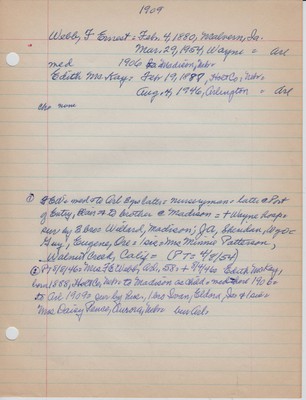 1909
Webb, F Ernest = Feb. 4, 1880, Malvern, Ia.
Mar. 29, 1954, Wayne = Arl
med 1906 Madison, Nebr
Edith McKay = Feb 19, 1888, Holt Co, Nebr =
Aug. 4, 1946, Arlington = Arl
the none
① = med = to Arl 1909 later = nurseryman = later = Post
of Entry, = to brother @ Madison = + Wayne hosp =
sur by 2 bros Willard, Madison; J A, Sheridan, Wyo =
Guy, Eugene, Ore = 1 sis = Mrs Minnie Patterson,
Walnut Creek, Calif = (PT = 4/8/54)
② PT 8/8/46 = Mrs F E Webb, Arl, 58 = + 8/4/46 Edith McKay,
born 1888, Holt Co, Nebr = to Madison as child = med there 1906 =
to Arl 1909 = sur by hus, 1 bro Ivan, = & 1 sis =
Mrs Daisy Pence, Aurora, Nebr = bur Arl =